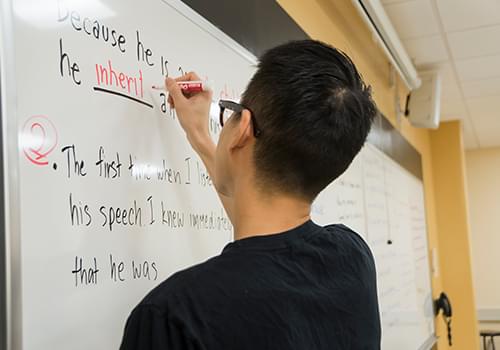 Because he is a
he inherit a
2
. The first time when I
his speech. I knew immediate
that he was